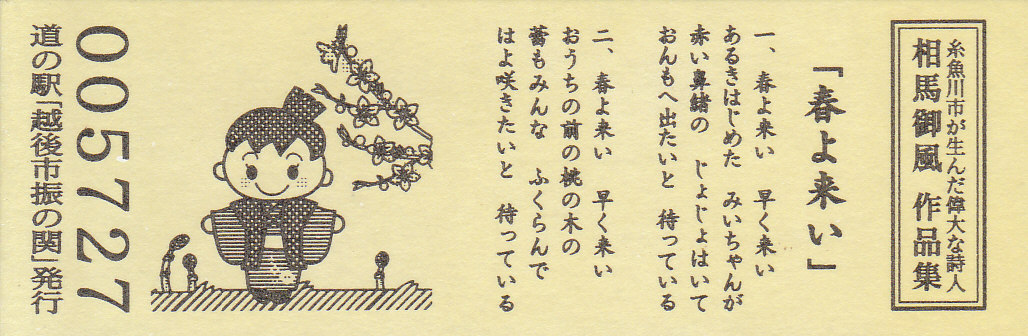 糸魚川市が生んだ偉大な詩人
相馬御風 作品集
「春よ来い」
一、春よ来い 早く来い
あるきはじめた みいちゃんが
赤い鼻緒の じょじょはいて
おんもへ出たいと 待っている
二、春よ来い 早く来い
おうちの前の桃の木の
蕾もみんな ふくらんで
はよ咲きたいと 待っている
005727
道の駅「越後市振の関」発行